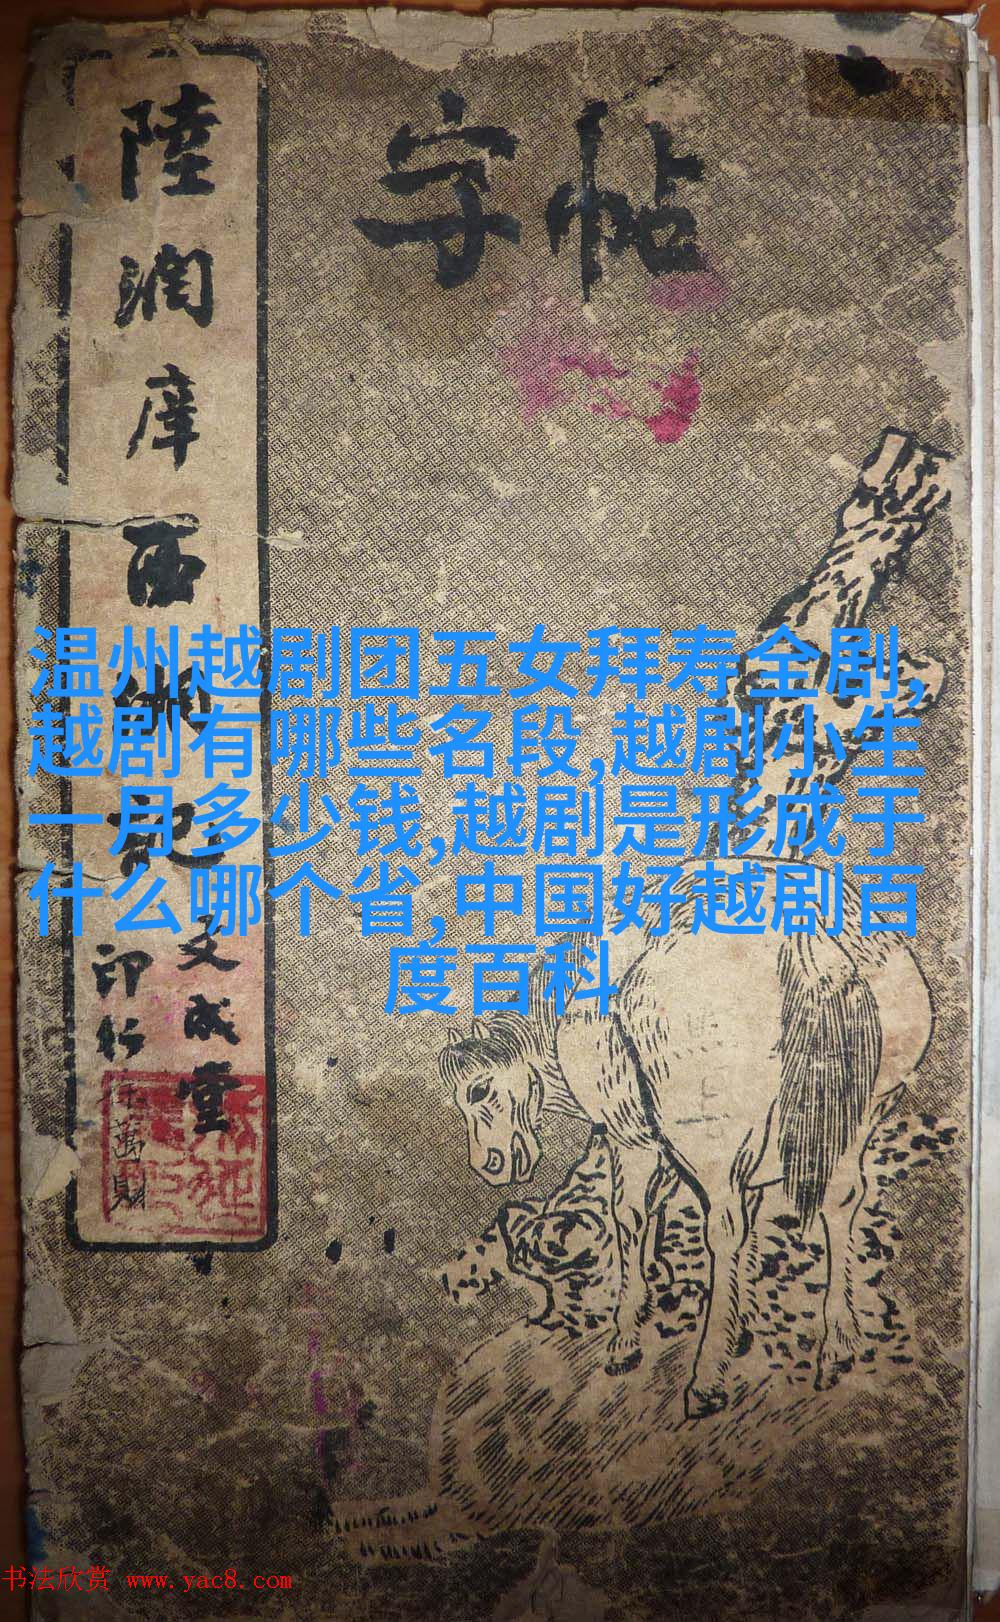 字帖
陸潤庠西湖記
文成堂
印行
徐萬財
温州越剧团五女拜寿全剧,
越剧有哪些名段,越剧小生
一月多少钱,越剧是形成于
什么哪个省,中国好越剧百
度百科
书法欣赏 www.yac8.com